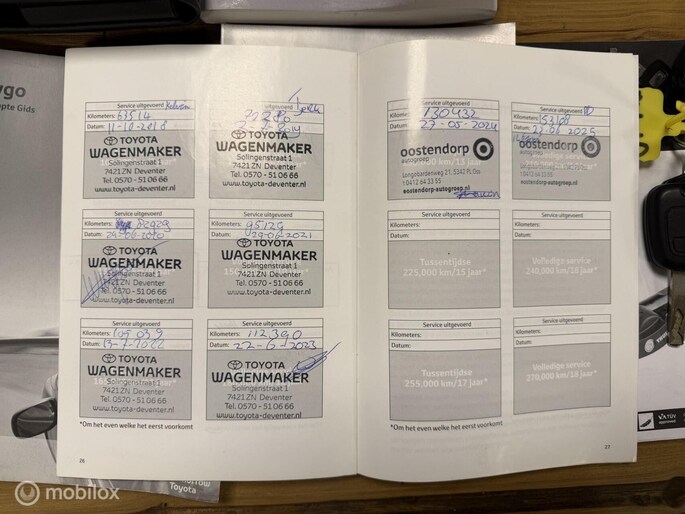 ygo
pte Gids
Service uitgevoerd
Kilometers: 63514
Datum: 11-10-2018
TOYOTA
WAGENMAKER
Solingenstraat 1
7421 ZN Deventer
Tel. 0570 - 51 06 66
www.toyota-deventer.nl
uitgevoerd
TOYOTA
WAGENMAKER
Solingenstraat 1
7421 ZN Deventer
Tel. 0570 - 51 06 66
www.toyota-deventer.nl
Service uitgevoerd
Kilometers: 82929
Datum: 24-06-2020
TOYOTA
WAGENMAKER
Solingenstraat 1
7421 ZN Deventer
Tel. 0570 - 51 06 66
www.toyota-deventer.nl
Service uitgevoerd
Kilometers: 95129
Datum: 29-06-2021
TOYOTA
WAGENMAKER
Solingenstraat 1
7421 ZN Deventer
Tel. 0570 - 51 06 66
www.toyota-deventer.nl
Service uitgevoerd
Kilometers: 105 039
Datum: 13-7-2022
TOYOTA
WAGENMAKER
Solingenstraat 1
7421 ZN Deventer
Tel. 0570 - 51 06 66
www.toyota-deventer.nl
Service uitgevoerd
Kilometers: 112.390
Datum: 22-6-2023
TOYOTA
WAGENMAKER
Solingenstraat 1
7421 ZN Deventer
Tel. 0570 - 51 06 66
www.toyota-deventer.nl
*Om het even welke het eerst voorkomt
26
Service uitgevoerd
Kilometers: 130432
Datum: 27-05-2024
oostendorp
autogroep
t 0412 64 33 55
oostendorp-autogroep.nl
Service uitgevoerd
Kilometers: 153108
Datum: 22-06-2025
oostendorp
autogroep
oostendorp-autogroep.nl
Service uitgevoerd
Kilometers:
Datum:
Tussentijdse
225,000 km/15 jaar*
Service uitgevoerd
Kilometers:
Datum:
Volledige service
240,000 km/16 jaar*
Service uitgevoerd
Kilometers:
Datum:
Tussentijdse
255,000 km/17 jaar*
Service uitgevoerd
Kilometers:
Datum:
Volledige service
270,000 km/18 jaar*
*Om het even welke het eerst voorkomt
27
Toyota
mobilox